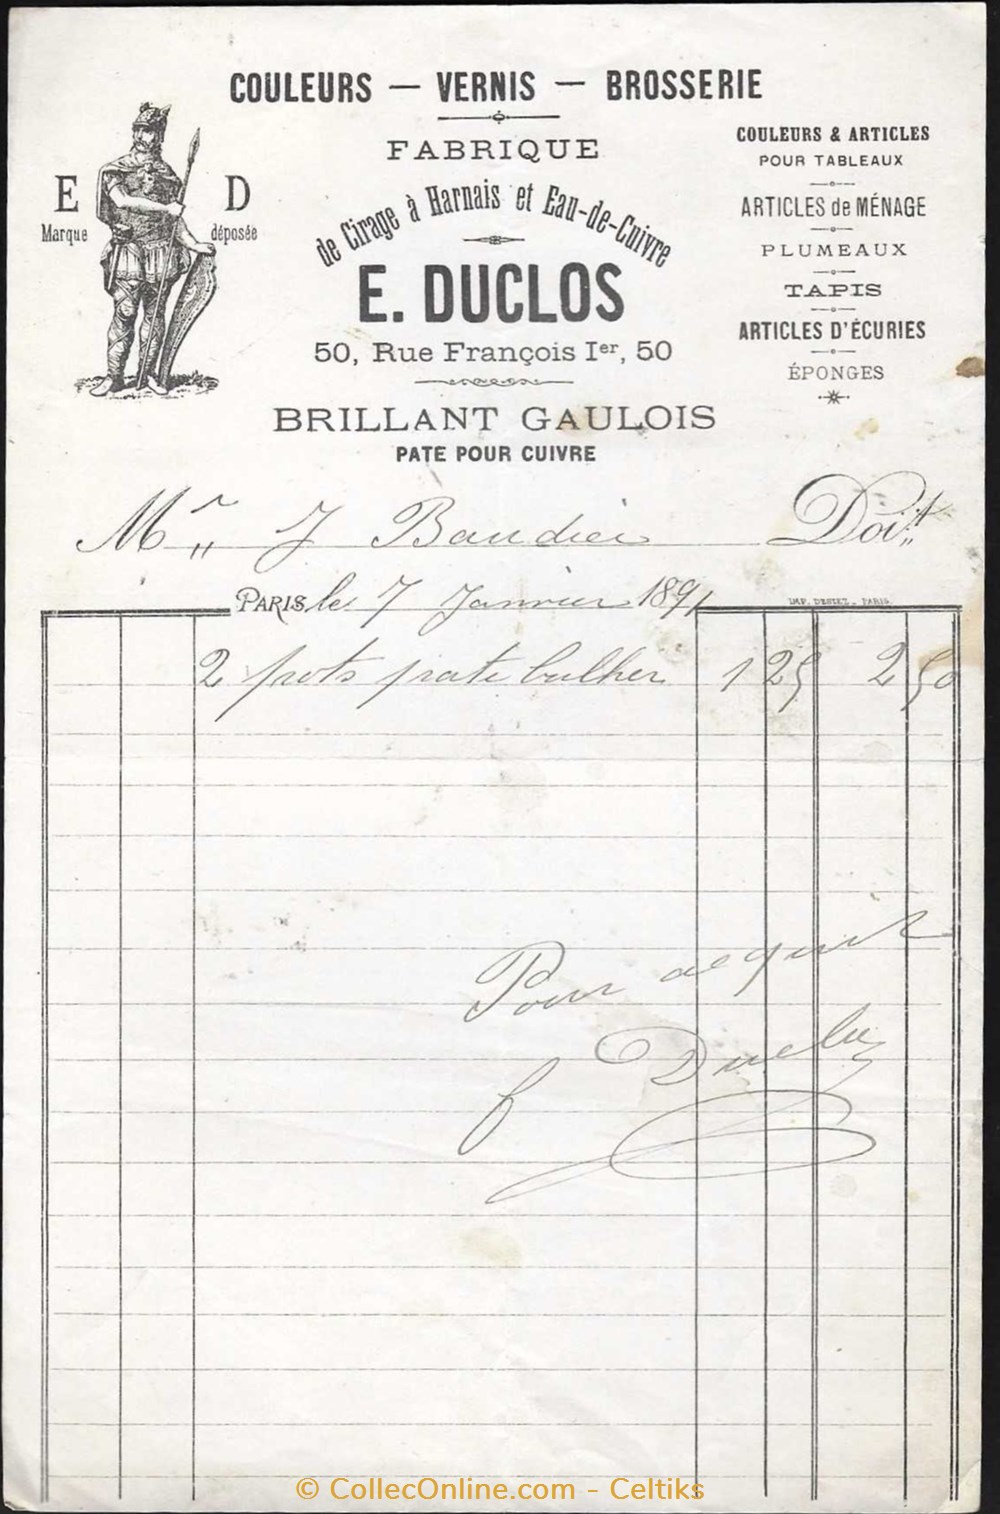 COULEURS — VERNIS — BROSSERIE
E D
Marque déposée
FABRIQUE
de Cirage à Harnais et Eau-de-Cuivre
E. DUCLOS
50, Rue François Ier, 50
BRILLANT GAULOIS
PATE POUR CUIVRE
COULEURS & ARTICLES
POUR TABLEAUX
ARTICLES de MÉNAGE
PLUMEAUX
TAPIS
ARTICLES D'ÉCURIES
ÉPONGES
Mr J Baudier Doit
PARIS, le 7 Janvier 1891
IMP. DESTEZ - PARIS.
2 pots pate 1 25 2 50
Pour acquit
Duclos
© CollecOnline.com - Celtiks